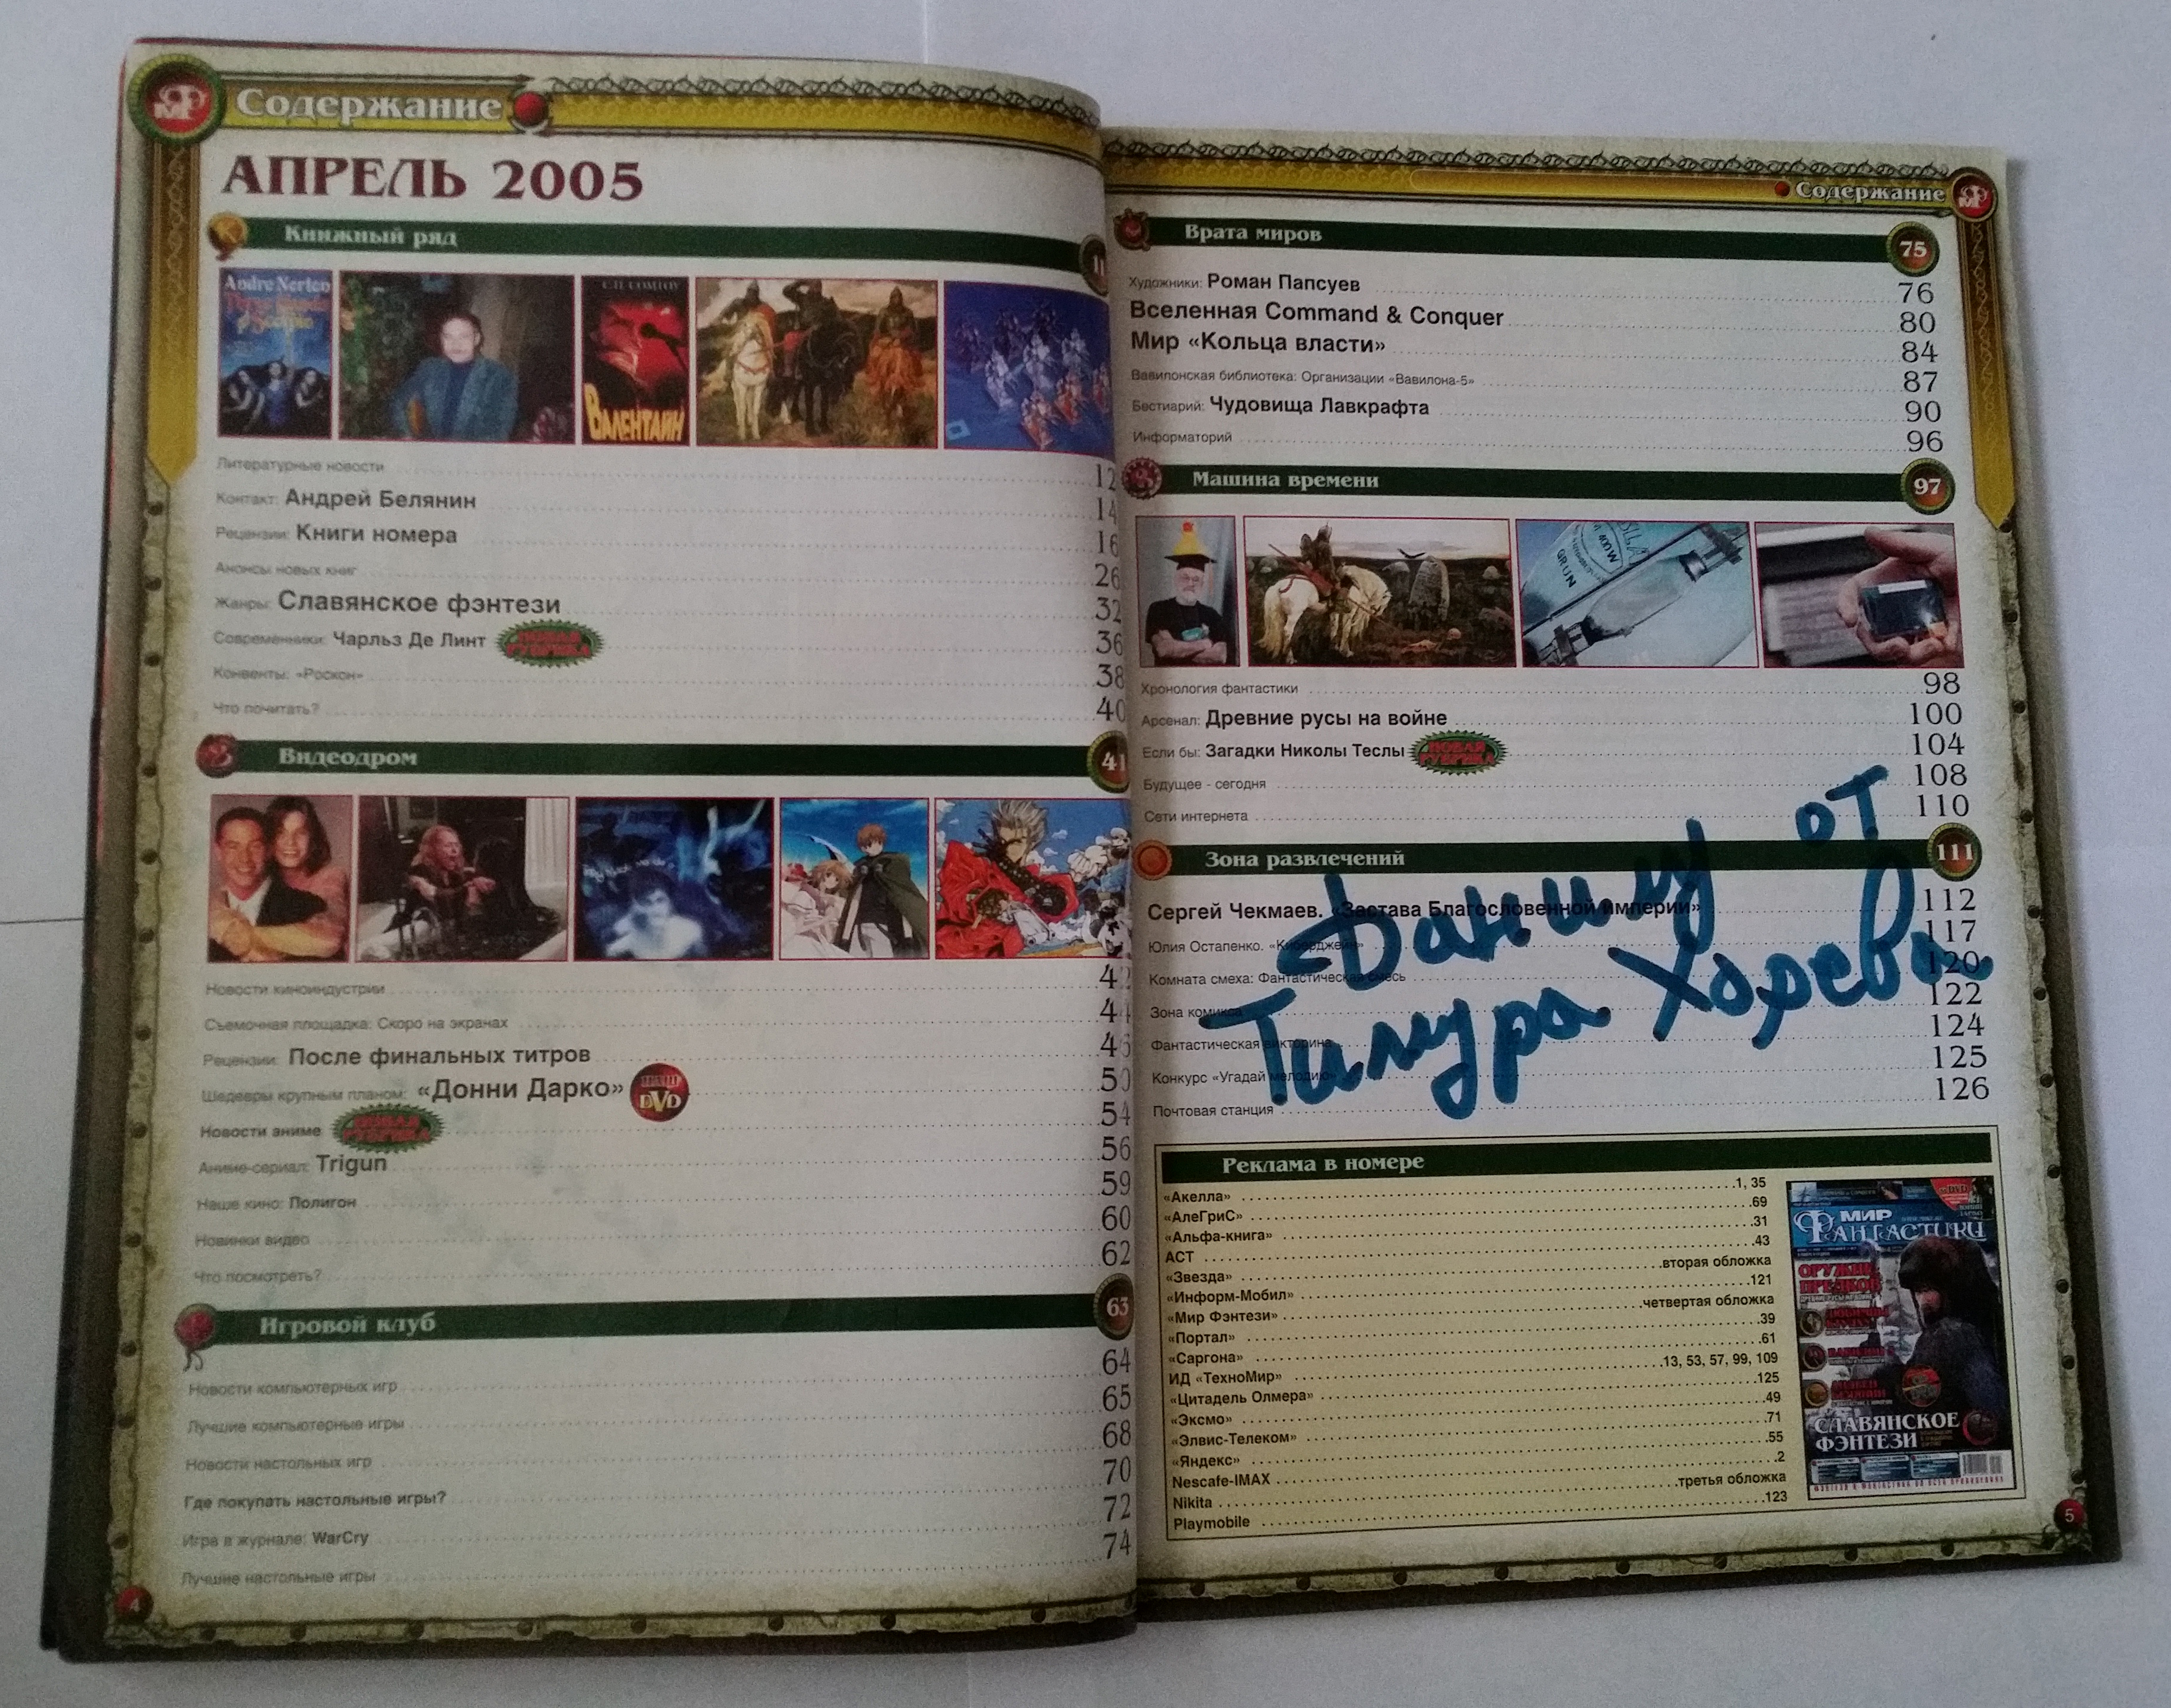 Содержание
АПРЕЛЬ 2005
Книжный ряд
Andre Norton
С.П. СОМТОУ
ВАЛЕНТАЙН
Литературные новости 12
Контакт: Андрей Белянин 14
Рецензии: Книги номера 16
Анонсы новых книг 26
Жанры: Славянское фэнтези 32
Современники: Чарльз Де Линт НОВАЯ РУБРИКА 36
Конвенты: «Роскон» 38
Что почитать? 40
Видеодром 41
Новости киноиндустрии 42
Съемочная площадка: Скоро на экранах 44
Рецензии: После финальных титров 46
Шедевры крупным планом: «Донни Дарко» НАШ DVD 50
Новости аниме НОВАЯ РУБРИКА 54
Аниме-сериал: Trigun 56
Наше кино: Полигон 59
Новинки видео 60
Что посмотреть? 62
Игровой клуб 63
Новости компьютерных игр 64
Лучшие компьютерные игры 65
Новости настольных игр 68
Где покупать настольные игры? 70
Игра в журнале: WarCry 72
Лучшие настольные игры 74
4
Содержание
Врата миров 75
Художники: Роман Папсуев 76
Вселенная Command & Conquer 80
Мир «Кольца власти» 84
Вавилонская библиотека: Организации «Вавилона-5» 87
Бестиарий: Чудовища Лавкрафта 90
Информаторий 96
Машина времени 97
Хронология фантастики 98
Арсенал: Древние русы на войне 100
Если бы: Загадки Николы Теслы НОВАЯ РУБРИКА 104
Будущее - сегодня 108
Сети интернета 110
Зона развлечений 111
Сергей Чекмаев. «Застава Благословенной империи» 112
Юлия Остапенко. «Киборджейн» 117
Комната смеха: Фантастическая смесь 120
Зона комикса 122
Фантастическая викторина 124
Конкурс «Угадай мелодию» 125
Почтовая станция 126
Данилу от
Тимура Хорева
Реклама в номере
«Акелла» 1, 35
«АлеГриС» 69
«Альфа-книга» 31
АСТ 43
«Звезда» вторая обложка
«Информ-Мобил» 121
«Мир Фэнтези» четвертая обложка
«Портал» 39
«Саргона» 61
ИД «ТехноМир» 13, 53, 57, 99, 109
«Цитадель Олмера» 125
«Эксмо» 49
«Элвис-Телеком» 71
«Яндекс» 55
Nescafe-IMAX 2
Nikita третья обложка
Playmobile 123
МИР
ФАНТАСТИКИ
ОРУЖИЕ
ПРЕДКОВ
СЛАВЯНСКОЕ
ФЭНТЕЗИ
5